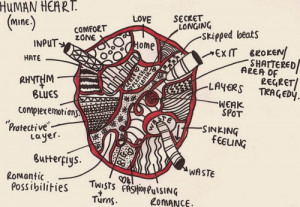 HUMAN HEART.
(mine.)
COMFORT
ZONE
LOVE
SECRET
LONGING
skipped beats
INPUT
Home
EXIT
HATE
BROKEN/
SHATTERED/
AREA OF
REGRET/
TRAGEDY.
RHYTHM
+
BLUES
LAYERS
Complex emotions.
WEAK
SPOT
"Protective"
Layer.
WASTE
SINKING
FEELING
Butterflys.
WASTE
Romantic
Possibilities
TWISTS
+
Turns.
FASHION
PULSING
ROMANCE.